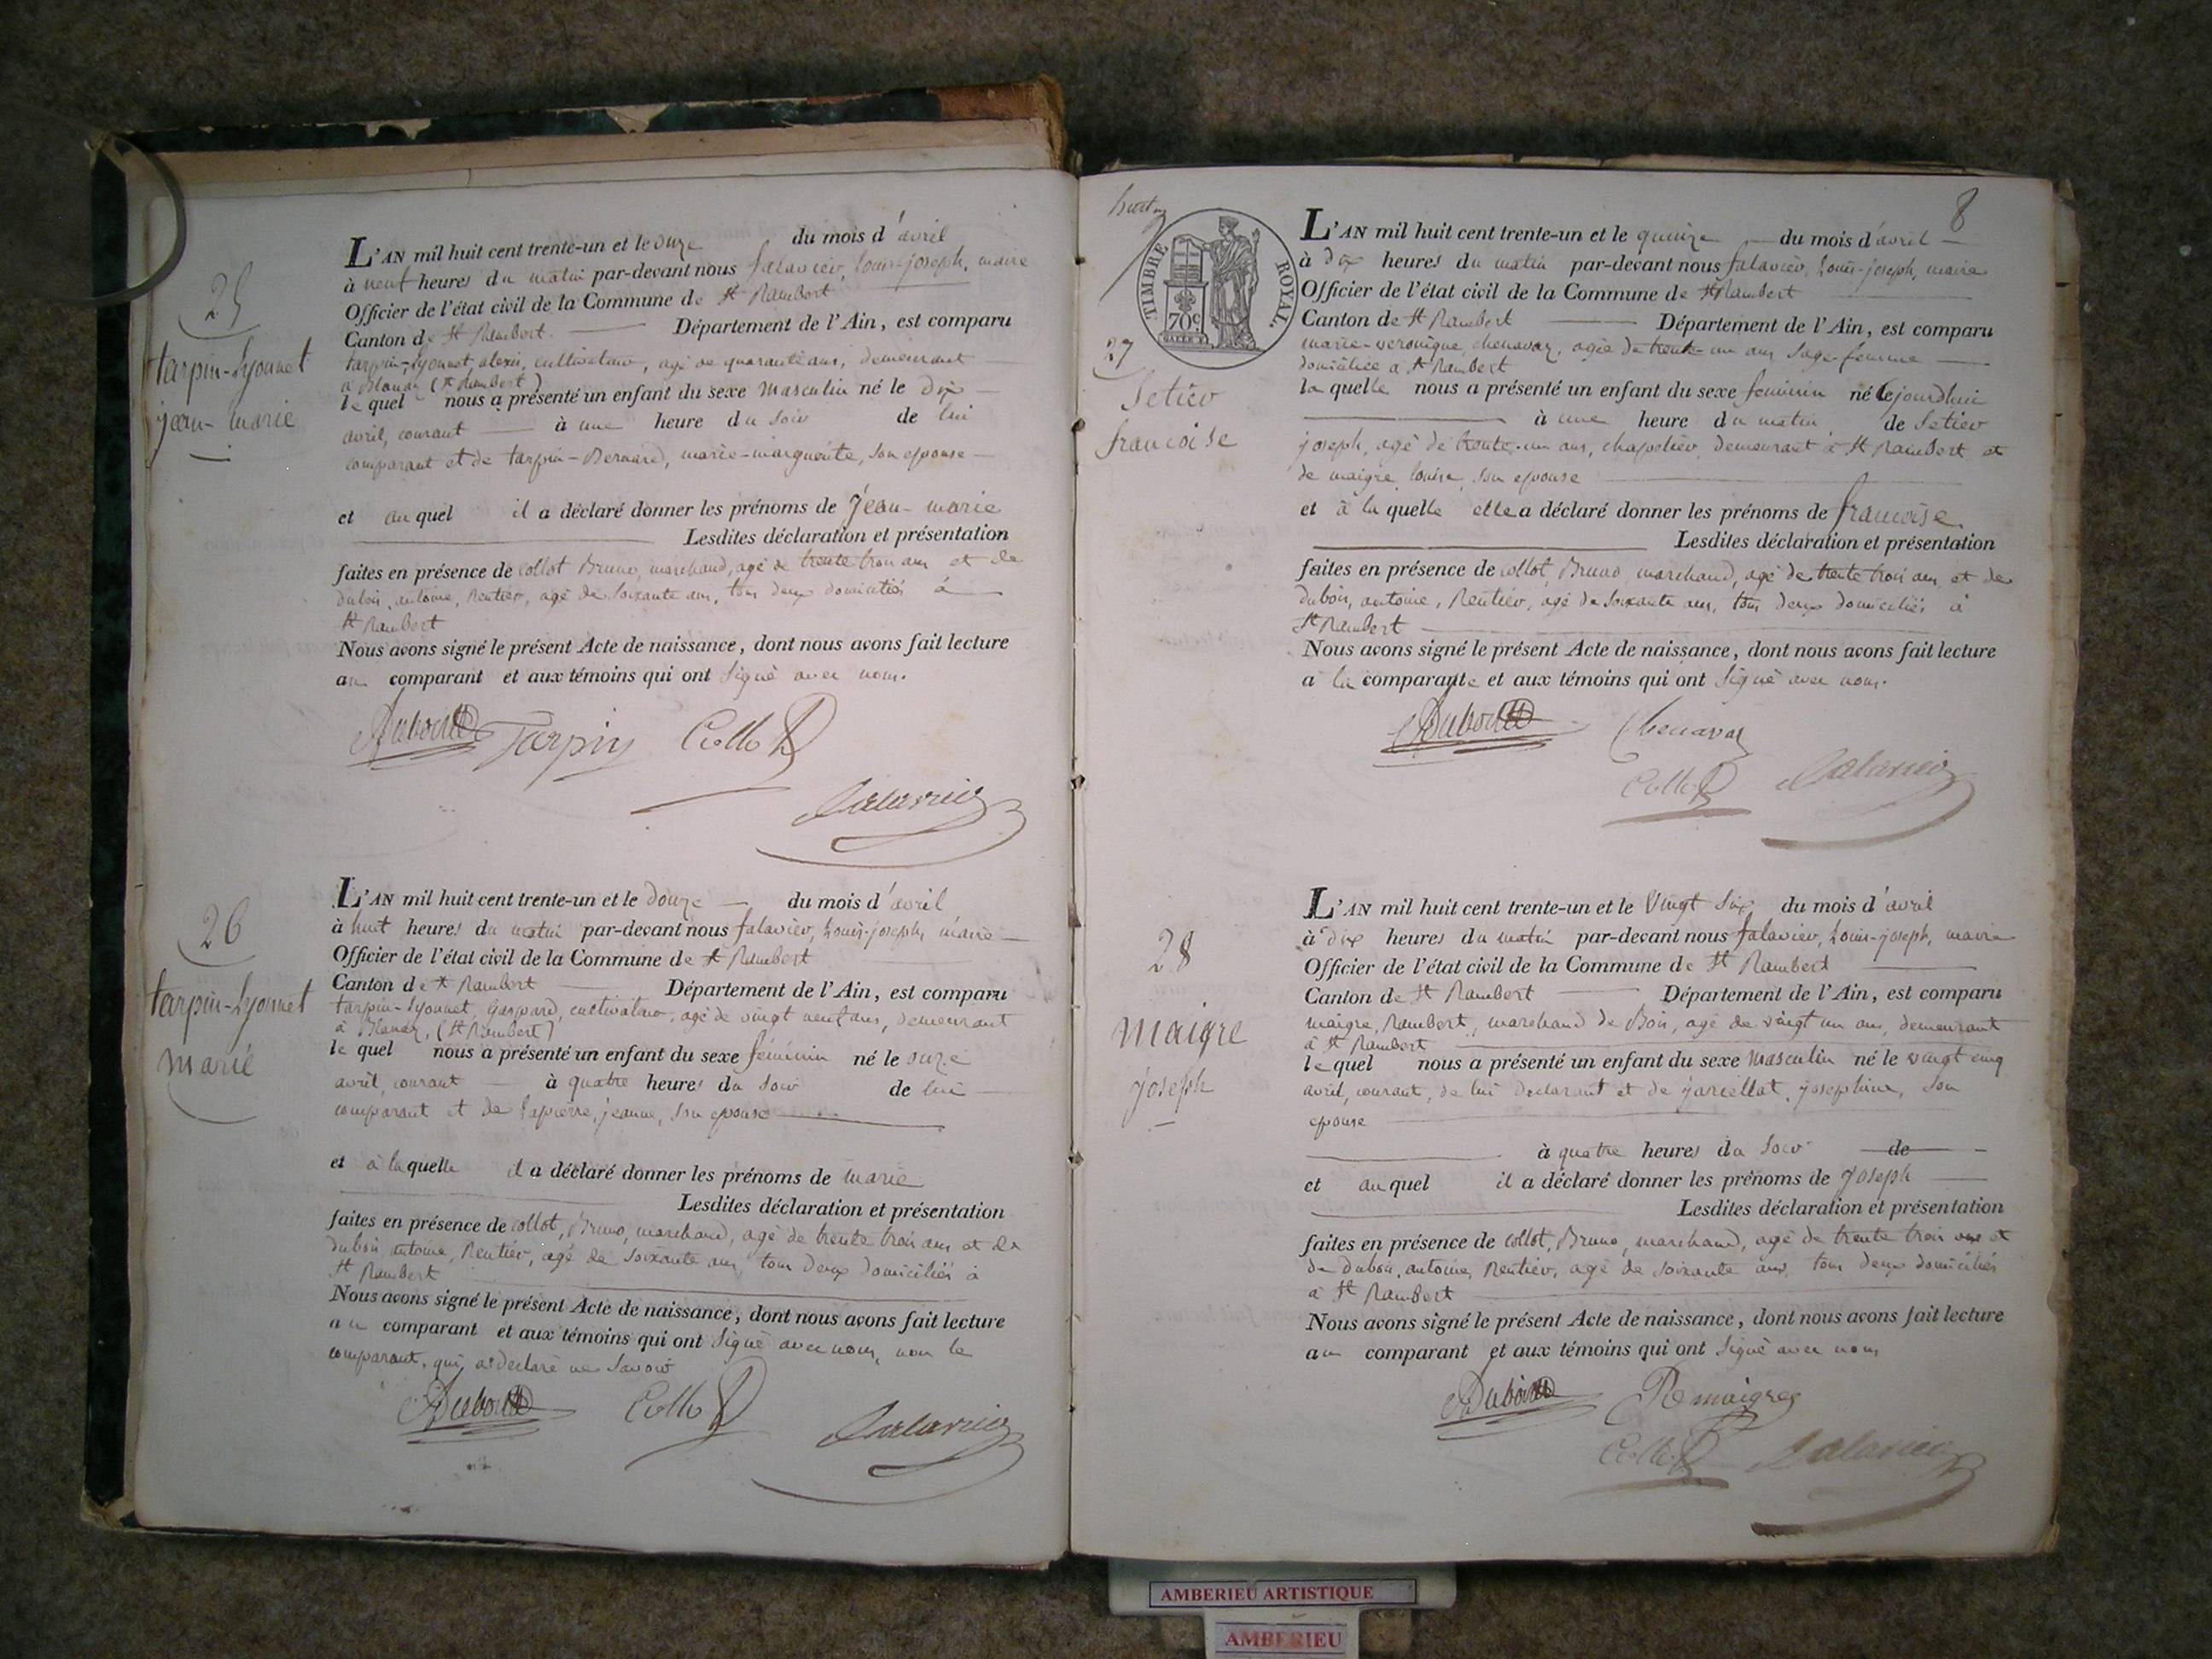 25
tarpin-Lyonnet
jean-marie
L'AN mil huit cent trente-un et le onze du mois d'avril
à neuf heures du matin par-devant nous falavier, Louis-joseph, maire
Officier de l'état civil de la Commune de St Rambert
Canton de St Rambert Département de l'Ain, est comparu
tarpin-Lyonnet, alexis, cultivateur, agé de quarante ans, demeurant
à Blanaz (St Rambert)
le quel nous a présenté un enfant du sexe masculin né le dix
avril, courant à une heure du soir de lui
comparant et de tarpin-Bernard, marie-marguerite, son epouse
et au quel il a déclaré donner les prénoms de Jean-marie
Lesdites déclaration et présentation
faites en présence de collot Bruno, marchand, agé de trente trois ans et de
dubois, antoine, Rentier, agé de soixante ans, tous deux domiciliés à
St Rambert
Nous avons signé le présent Acte de naissance, dont nous avons fait lecture
au comparant et aux témoins qui ont signé avec nous.
Dubois Tarpin Collot
falavier
26
tarpin-Lyonnet
marie
L'AN mil huit cent trente-un et le douze du mois d'avril
à huit heures du matin par-devant nous falavier, Louis-joseph, maire
Officier de l'état civil de la Commune de St Rambert
Canton de St Rambert Département de l'Ain, est comparu
tarpin-Lyonnet, Gaspard, cultivateur, agé de vingt neuf ans, demeurant
à Blanaz, (St Rambert)
le quel nous a présenté un enfant du sexe féminin né le onze
avril, courant à quatre heures du soir de lui
comparant et de Lapierre, jeanne, son epouse
et à la quelle il a déclaré donner les prénoms de marie
Lesdites déclaration et présentation
faites en présence de collot, Bruno, marchand, agé de trente trois ans et de
dubois, antoine, Rentier, agé de soixante ans, tous deux domiciliés à
St Rambert
Nous avons signé le présent Acte de naissance, dont nous avons fait lecture
au comparant et aux témoins qui ont signé avec nous, non le
comparant, qui a déclaré ne savoir
Dubois Collot falavier
8
huit
TIMBRE ROYAL
70c
27
Setier
francoise
L'AN mil huit cent trente-un et le quinze du mois d'avril
à dix heures du matin par-devant nous falavier, Louis-joseph, maire
Officier de l'état civil de la Commune de St Rambert
Canton de St Rambert Département de l'Ain, est comparu
marie-veronique, chenavaz, agée de trente-un ans sage-femme
domiciliée à St Rambert
la quelle nous a présenté un enfant du sexe feminin né cejourdhui
à une heure du matin de Setier
joseph, agé de trente-un ans, chapelier, demeurant à St Rambert et
de maigre, louise, son epouse
et à la quelle elle a déclaré donner les prénoms de francoise
Lesdites déclaration et présentation
faites en présence de collot, Bruno marchand, agé de trente trois ans et de
dubois, antoine, Rentier, agé de soixante ans, tous deux domiciliés à
St Rambert
Nous avons signé le présent Acte de naissance, dont nous avons fait lecture
a la comparante et aux témoins qui ont signé avec nous.
Dubois Chenavaz
Collot falavier
28
maigre
joseph
L'AN mil huit cent trente-un et le vingt six du mois d'avril
à dix heures du matin par-devant nous falavier, Louis-joseph, maire
Officier de l'état civil de la Commune de St Rambert
Canton de St Rambert Département de l'Ain, est comparu
maigre, Rambert, marchand de Bois, agé de vingt un ans, demeurant
à St Rambert
le quel nous a présenté un enfant du sexe masculin né le vingt cinq
avril, courant, de lui declarant et de jarcellat, josephine, son
epouse
à quatre heures du soir de
et au quel il a déclaré donner les prénoms de joseph
Lesdites déclaration et présentation
faites en présence de collot, Bruno, marchand, agé de trente trois ans et
de dubois, antoine, Rentier, agé de soixante ans, tous deux domiciliés
à St Rambert
Nous avons signé le présent Acte de naissance, dont nous avons fait lecture
au comparant et aux témoins qui ont signé avec nous
Dubois R maigre
Collot falavier
AMBERIEU ARTISTIQUE
AMBERIEU